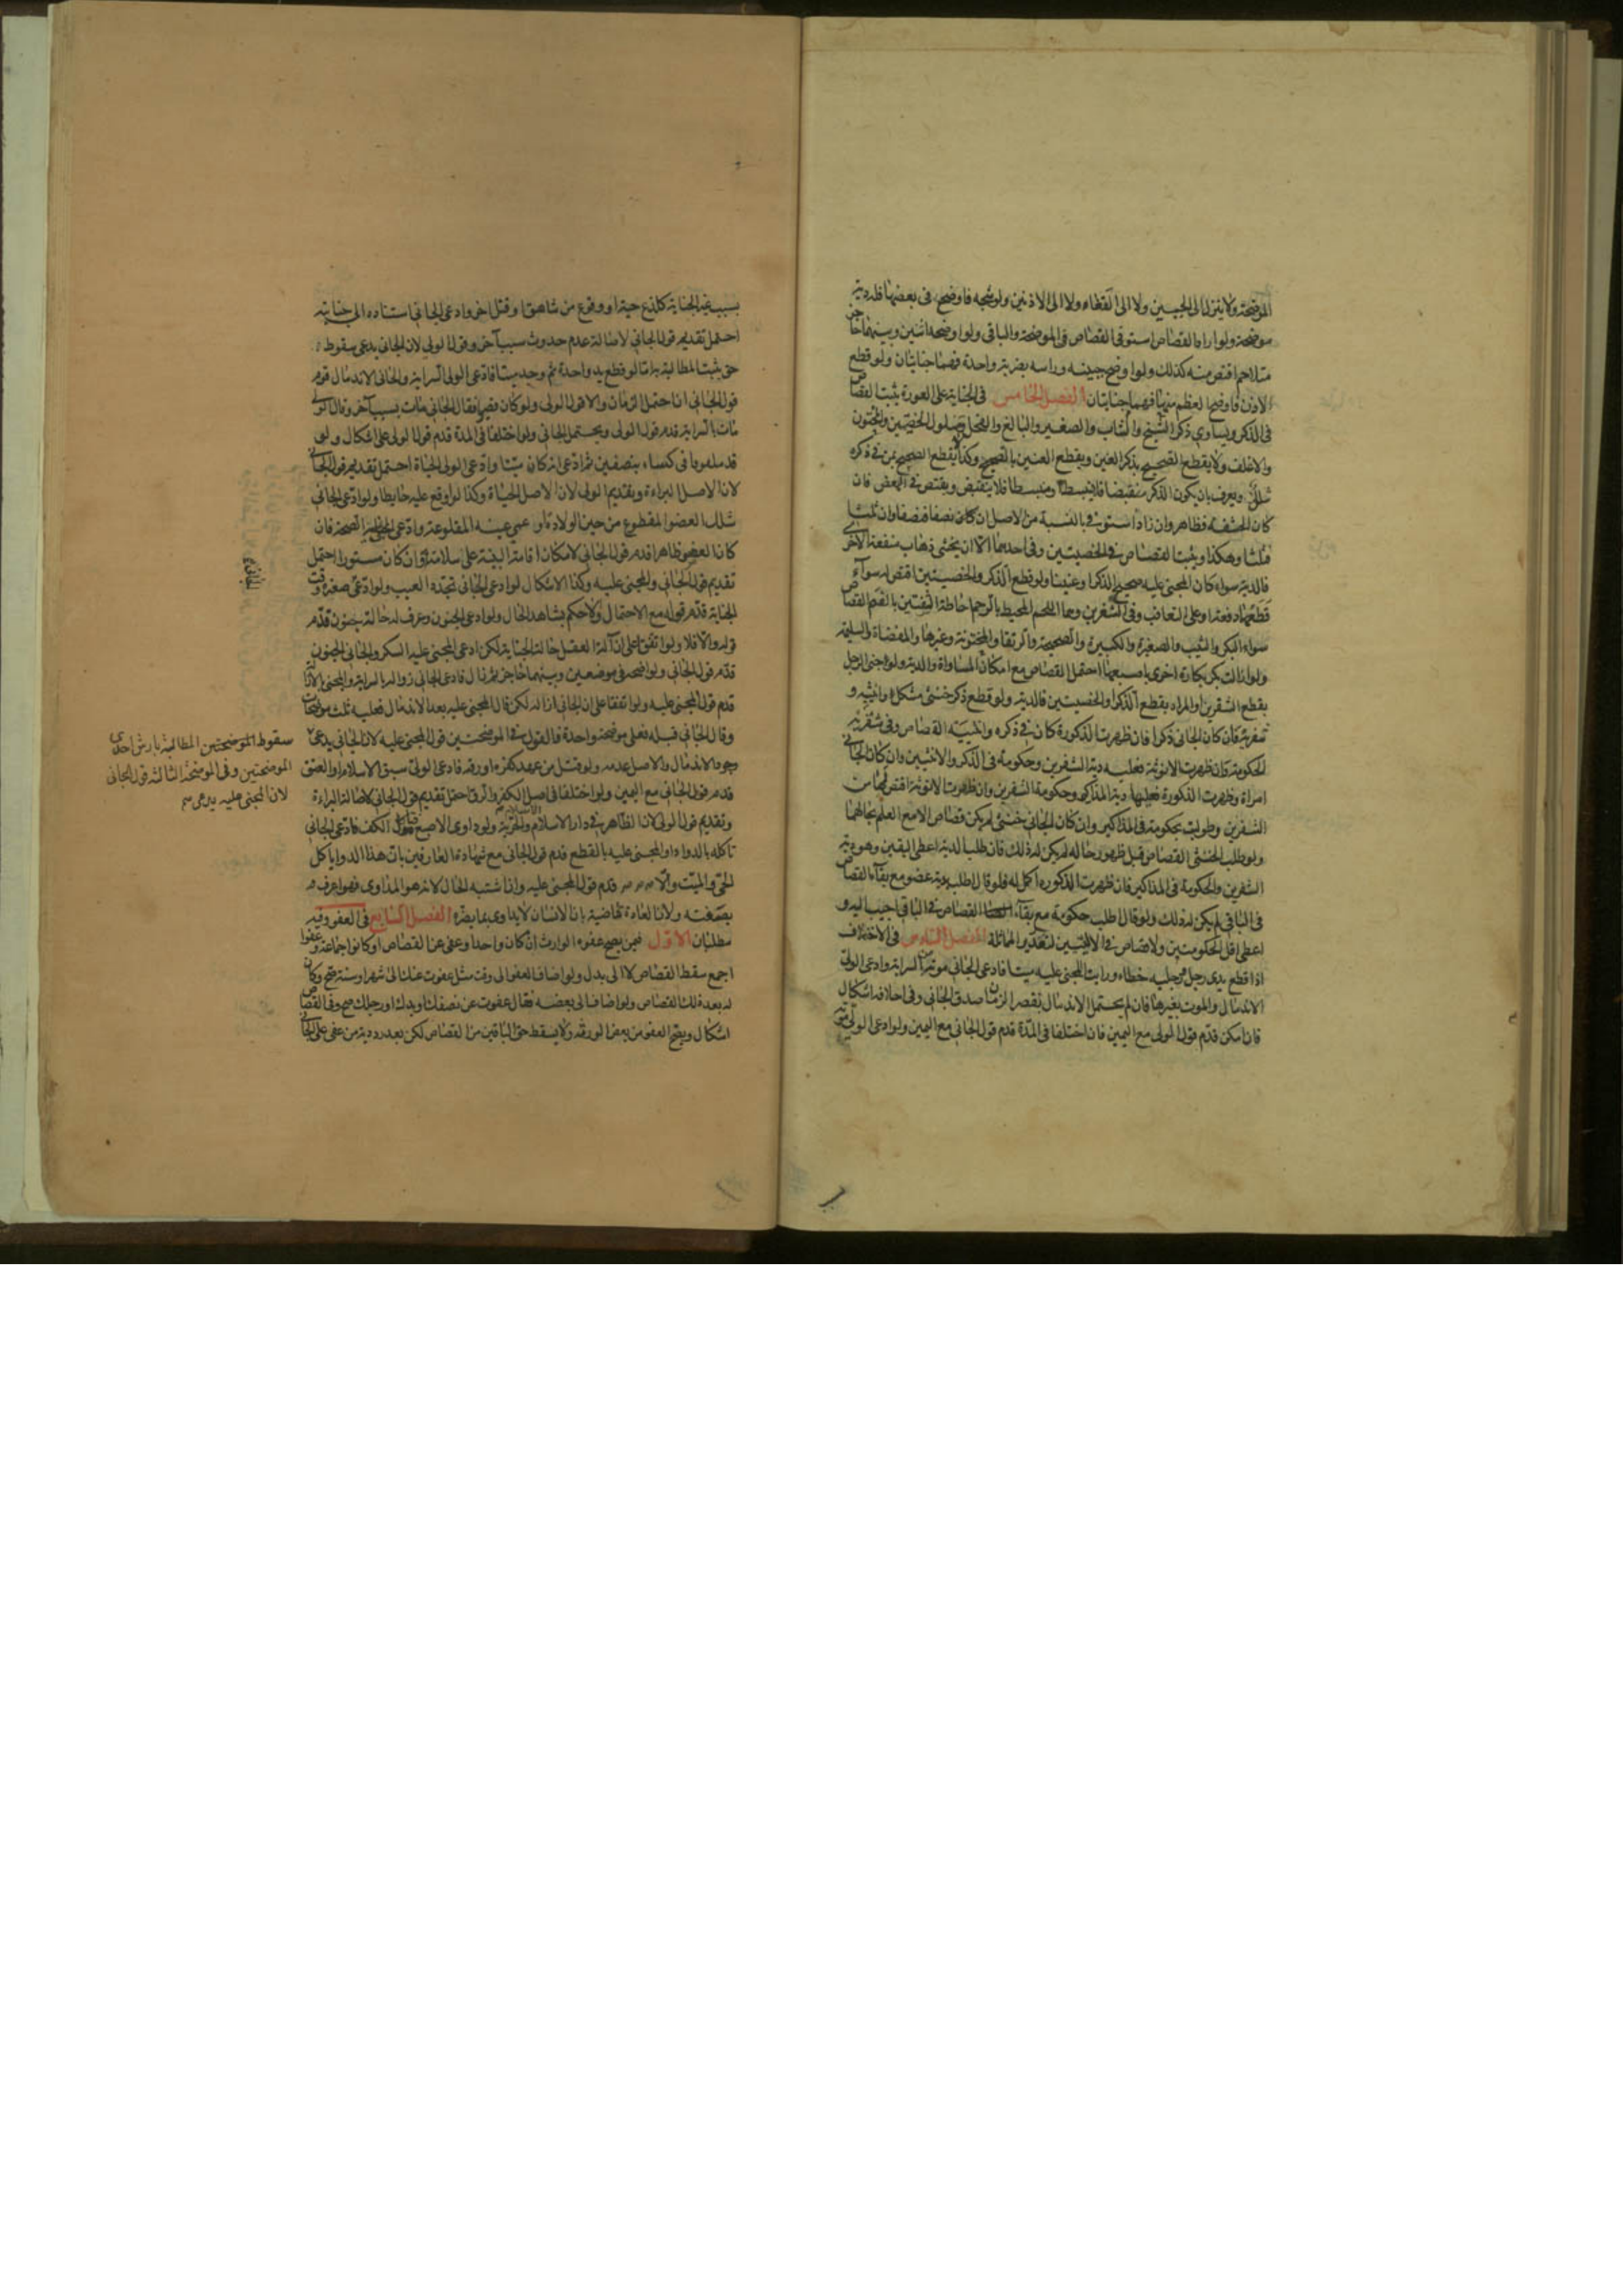 الموضحة ولا ينزل الى الجبين ولا الى القفاء ولا الى الاذنين ولو شجه فاوضح في بعضها فله دية
موضحة ولو اراد القصاص استوفى القصاص في الموضحة والباقي ولو اوضحه اثنين وبينهما حاجز
متلاحم اقتص منه كذلك ولو اوضح جبينه وراسه بضربة واحدة فهما جنايتان ولو قطع
الاذن فاوضح العظم منها فهما جنايتان الفصل الخامس في الجناية على العورة يثبت القصاص
في الذكر ويساوي ذكر الشيخ والشاب والصغير والبالغ والفحل ومسلول الخصيتين والمختون
والاغلف ولا يقطع الصحيح بذكر العنين ويقطع العنين بالصحيح وكذا يقطع الصحيح بمن في ذكره
شلل ويعرف بان يكون الذكر منقبضا فلا ينبسط او منبسطا فلا ينقبض ويقتص في البعض فان
كان الحشفه فظاهر وان زاد استوفى بالنسبة من الاصل ان كان نصفا فنصفا وان ثلثا
فثلثا وهكذا ويثبت القصاص في الخصيتين وفي احديهما الا ان يخشى ذهاب منفعة الاخرى
فالدية سواء كان المجنى عليه صحيح الذكر او عنينا ولو قطع الذكر والخصيتين اقتص له سواء
قطعهما دفعة او على التعاقب وفي الشفرين وهما اللحم المحيط بالرحم احاطة الشفتين بالفم القصاص
سواء البكر والثيب والصغيرة والكبيرة والصحيحة والرتقا والمختونة وغيرها والمفضاة والسليمة
ولو ازالت بكر بكارة اخرى باصبعها احتمل القصاص مع امكان المساواة والدية ولو جنى الرجل
بقطع الشفرين او المراه بقطع الذكر او الخصيتين فالدية ولو قطع ذكر خنثى مشكل وانثييه و
شفريه فان كان الجاني ذكرا فان ظهرت الذكورة كان في ذكره وانثييه القصاص وفي شفريه
الحكومة وان ظهرت الانوثة فعليه دية الشفرين وحكومة في الذكر والانثيين وان كان الجاني
امراة وظهرت الذكورة فعليها دية المذاكير وحكومة الشفرين وان ظهرت الانوثة اقتص لها من
الشفرين وطولبت بحكومة في المذاكير وان كان الجاني خنثى لم يكن قصاص الا مع العلم بحالهما
ولو طلب الخنثى القصاص قبل ظهور حاله لم يكن له ذلك فان طلب الدية اعطى اليقين وهو دية
الشفرين والحكومة في المذاكير فان ظهرت الذكوره اكمل له فلو قال اطلب دية عضو مع بقاء القصاص
في الباقي لم يكن له ذلك ولو قال اطلب حكومة مع بقاء القصاص في الباقي اجيب اليه و
اعطى اقل الحكومتين ولا قصاص في الاليتين لتعذر المماثلة الفصل السادس في الاختلاف
اذا قطع يدى رجل ورجليه خطاء ورايت المجنى عليه ميتا فادعى الجاني موته من السراية وادعى الولى
الاندمال والموت بغيرها فان لم يحتمل الاندمال لقصر الزمان صدق الجاني وفي احلافه اشكال
فان امكن قدم قول الولى مع اليمين فان اختلفا في المدة قدم قول الجاني مع اليمين ولو ادعى الولى موته
بسبب غير الجناية كلدغ حية او وقوع من شاهق او قتل اخر وادعى الجاني استناده الى جنايته
احتمل تقديم قول الجاني لاصالة عدم حدوث سبب آخر وقول الولى لان الجاني يدعى سقوط
حق يثبت المطالبة به اما لو قطع يد واحدة ثم وجد ميتا فادعى الولى السراية والجاني الاندمال قدم
قول الجاني ان احتمل الزمان والا قول الولى ولو كان قصيرا فقال الجاني مات بسبب آخر وقال الولى
مات بالسراية قدم قول الولى ويحتمل الجاني ولو اختلفا في المدة قدم قول الولى على اشكال ولو
قد ملفوفا في كساء بنصفين ثم ادعى انه كان ميتا وادعى الولى الحياة احتمل تقديم قول الجاني
لان الاصل البراءة وتقديم الولى لان الاصل الحياة وكذا لو اوقع عليه حايطا ولو ادعى الجاني
شلل العضو المقطوع من حين الولادة او عمي عينه المقلوعة وادعى المجنى عليه الصحة فان
كان العضو ظاهرا قدم قول الجاني لامكان اقامة البينة على سلامته وان كان مستورا احتمل
تقديم قول الجاني والمجنى عليه وكذا الاشكال لو ادعى الجاني تجدد العيب ولو ادعى صغره وقت
الجناية قدم قوله مع الاحتمال والا حكم بشاهد الحال ولو ادعى الجنون وعرف له حالة جنون قدم
قوله والا فلا ولو اتفقا على زوال العقل حالة الجناية لكن ادعى المجنى عليه السكر والجاني الجنون
قدم قول الجاني ولو اوضحه في موضعين وبينهما حاجز ثم زال فادعى الجاني زواله بالسراية والمجنى بالازالة
قدم قول المجنى عليه ولو اتفقا على ان الجاني ازاله لكن قال المجنى عليه بعد الاندمال فعليه ثلث موضحات
وقال الجاني قبله فعلى موضحة واحدة فالقول في الموضحتين قول المجنى عليه لان الجاني يدعى
وجود الاندمال والاصل عدمه ولو قتل من عهد كفره او رقه فادعى الولى سبق الاسلام او العتق
قدم قول الجاني مع اليمين ولو اختلفا في اصل الكفر والرق احتمل تقديم قول الجاني لاصالة البراءة
وتقديم قول الولى لان الظاهر في دار الاسلام الاسلام والحرية ولو داوى الاصبع فتاكل الكف فادعى الجاني
تاكله بالدواء او المجنى عليه بالقطع قدم قول الجاني مع شهادة العارفين بان هذا الدواء ياكل
الحي والميت والا قدم قول المجنى عليه وان اشتبه الحال لانه هو المداوى فهو اعرف
بصفته ولان العادة قاضية بان الانسان لا يداوى بما يضره الفصل السابع في العفو وفيه
مطلبان الاول فيمن يصح عفوه الوارث ان كان واحدا وعفى عن القصاص او كانوا جماعة وعفوا
اجمع سقط القصاص لا الى بدل ولو اضاف العفو الى وقت مثل عفوت عنك الى شهر او سنة صح وكان
له بعد ذلك القصاص ولو اضاف الى بعضه فقال عفوت عن نصفك او يدك او رجلك صح وفي القصاص
اشكال ويصح العفو من بعض الورثه ولا يسقط حق الباقين من القصاص لكن بعد رد دية من عفى على الجاني
سقوط الموضحتين المطالبة بارش احدى
الموضحتين وفي الموضحة الثالثة قول الجاني
لان المجنى عليه يدعى